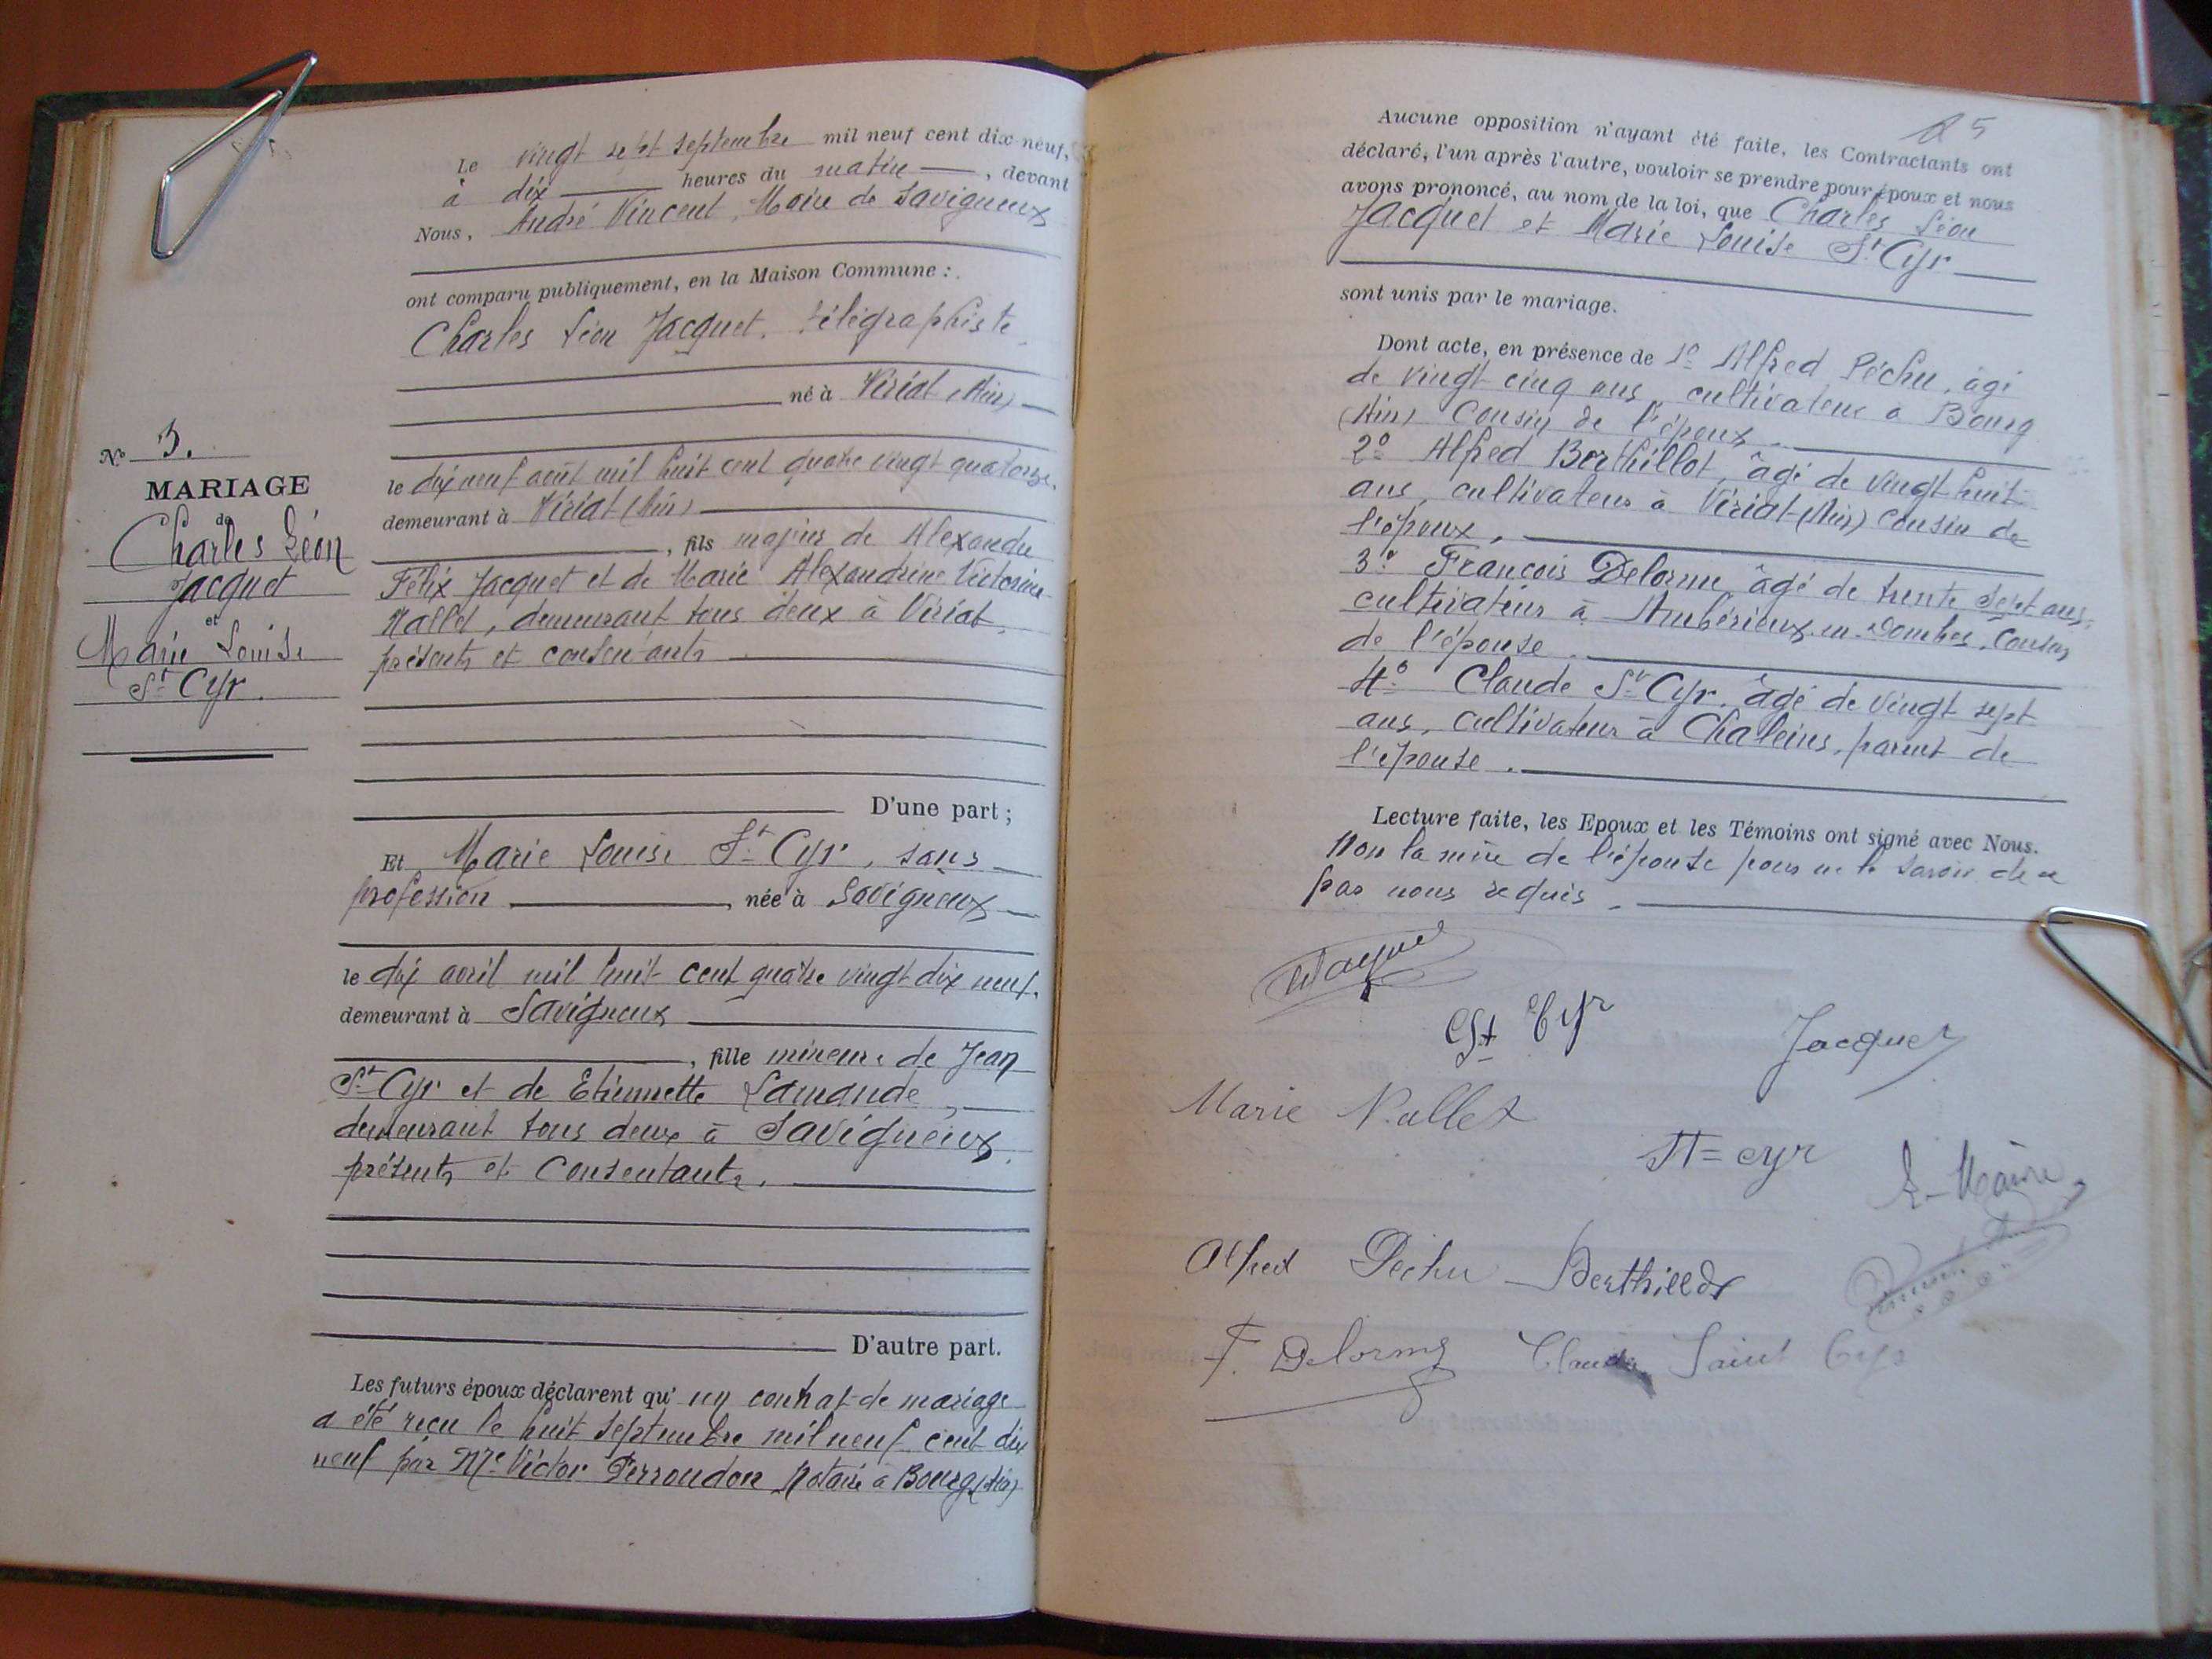 Le vingt sept septembre mil neuf cent dix-neuf,
à dix heures du matin, devant
Nous, André Vincent, Maire de Savigneux
ont comparu publiquement, en la Maison Commune :
Charles Léon Jacquet, télégraphiste
né à Viriat (Ain)
le dix neuf août mil huit cent quatre vingt quatorze,
demeurant à Viriat (Ain)
, fils majeur de Alexandre
Félix Jacquet et de Marie Alexandrine Victorine
Nallet, demeurant tous deux à Viriat,
présents et consentants
D'une part ;
No 3.
MARIAGE
de
Charles Léon
Jacquet
et
Marie Louise
St Cyr.
Et Marie Louise St Cyr, sans
profession, née à Savigneux
le dix avril mil huit cent quatre vingt dix neuf,
demeurant à Savigneux
, fille mineure de Jean
St Cyr et de Etiennette Lamande,
demeurant tous deux à Savigneux,
présents et consentants.
D'autre part.
Les futurs époux déclarent qu'un contrat de mariage
a été reçu le huit septembre mil neuf cent dix
neuf par Me Victor Perroudon Notaire à Bourg (Ain)
25
Aucune opposition n'ayant été faite, les Contractants ont
déclaré, l'un après l'autre, vouloir se prendre pour époux et nous
avons prononcé, au nom de la loi, que Charles Léon
Jacquet et Marie Louise St Cyr
sont unis par le mariage.
Dont acte, en présence de 1o Alfred Péchu, âgé
de vingt cinq ans, cultivateur à Bourg
(Ain) cousin de l'époux.
2o Alfred Berthillot, âgé de vingt huit
ans, cultivateur à Viriat (Ain) cousin de
l'époux,
3o François Delorme âgé de trente sept ans,
cultivateur à Ambérieux-en-Dombes, cousin
de l'épouse.
4o Claude St Cyr, âgé de vingt sept
ans, cultivateur à Chaleins, parent de
l'épouse.
Lecture faite, les Epoux et les Témoins ont signé avec Nous.
Non la mère de l'épouse pour ne le savoir de ce
par nous requis.
St Cyr
Jacquet
Marie Nallet
St=cyr
Le Maire
Alfred Péchu Berthillot
F. Delorme Claude Saint Cyr